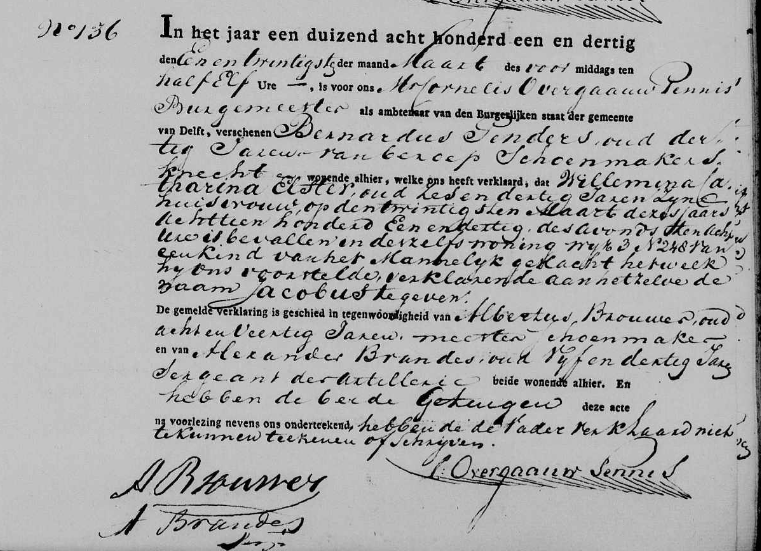 No 136
In het jaar een duizend acht honderd een en dertig
den Een en twintigste der maand Maart des voor middags ten
half Elf Ure —, is voor ons Mr Cornelis Overgaauw Pennis
Burgemeester als ambtenaar van den Burgerlijken staat der gemeente
van Delft, verschenen Bernardus Tenders, oud der-
tig Jaren van beroep Schoenmakers
knecht wonende alhier, welke ons heeft verklaard, dat Willemina Ca
tharina Elster, oud zes en dertig Jaren zyne
huisvrouw, op den twintigsten Maart dezes Jaars
achttien honderd Een en dertig, des avonds ten acht
Ure is bevallen in derzelfs woning wyk 3 No 248 van
een kind van het Mannelyk geslacht hetwelk
hy ons voorstelde, verklarende aan hetzelve de
naam Jacobus te geven.
De gemelde verklaring is geschied in tegenwoordigheid van Albertus Brouwer, oud
acht en Veertig Jaren, meester schoenmaker
en van Alexander Brandes, oud Vyf en dertig Jaren
Sergeant der Artillerie beide wonende alhier. En
hebben de beide Getuigen deze acte
na voorlezing nevens ons onderteekend, hebbende de Vader verklaard niet
te kunnen teekenen of Schryven.
C. Overgaauw Pennis
A Brouwer
A Brandes